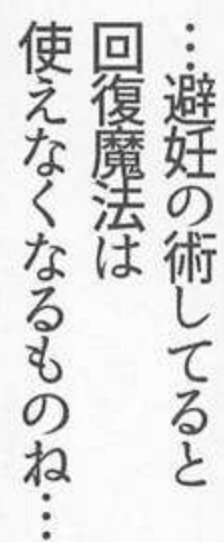 …避妊の術してると
回復魔法は
使えなくなるものね…